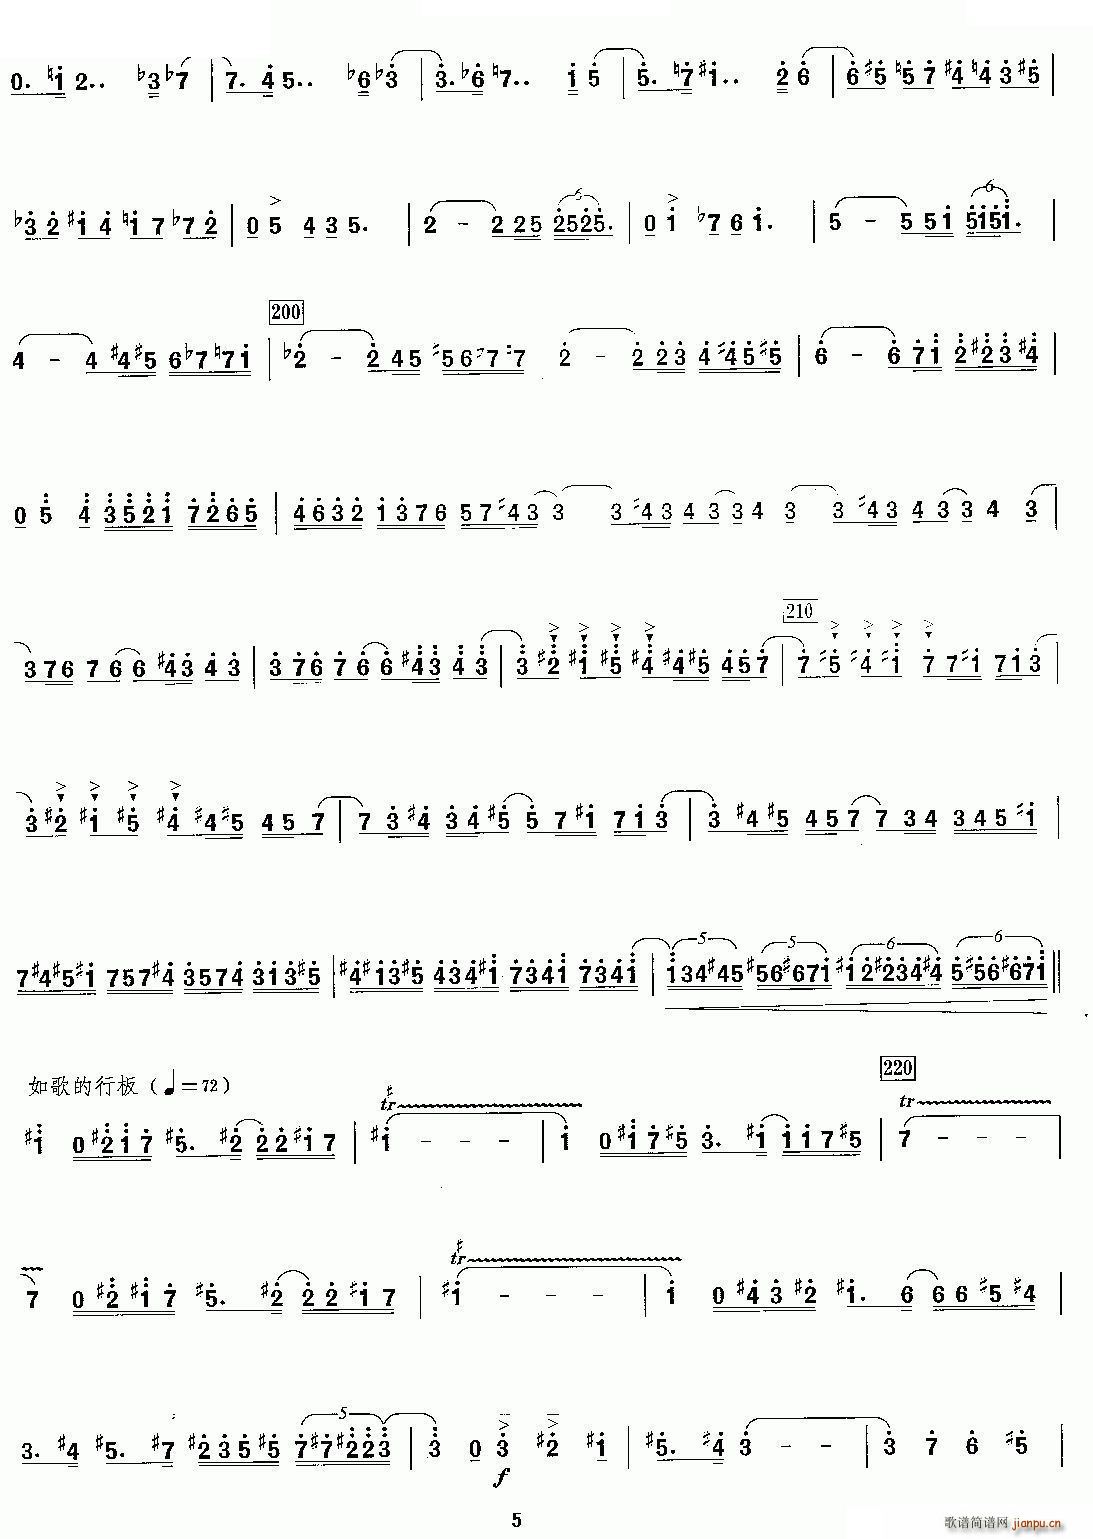 0. ♮1 2.. ♭3 ♭7 | 7. 4 5.. ♭6 ♭3 | 3. ♭6 ♮7.. 1 5 | 5. ♮7 #1.. 2 6 | 6 #5 ♮5 7 #4 ♮4 3 #5 |
♭3 2 #1 4 ♮1 7 ♭7 2 | 0 5 4 3 5. | 2 - 2 2 5 2525. | 0 1 ♭7 6 1. | 5 - 5 5 1 5151. |
4 - 4 #4 #5 6 ♭7 ♮7 1 | 200 ♭2 - 2 4 5 #5 6 #7 #7 2 - 2 2 3 4 #4 5 #5 | 6 - 6 7 1 2 #2 3 #4 |
0 5 4 3 5 2 1 7 2 6 5 | 4 6 3 2 1 3 7 6 5 7 #4 3 3 3 #4 3 4 3 3 4 3 3 #4 3 4 3 3 4 3 |
3 7 6 7 6 6 #4 3 4 3 | 3 7 6 7 6 6 #4 3 4 3 | 3 #2 #1 #5 #4 #4 #5 4 5 7 | 210 7 #5 #4 #1 7 7 #1 7 1 3 |
3 #2 #1 #5 #4 #4 #5 4 5 7 | 7 3 #4 3 4 #5 5 7 #1 7 1 3 | 3 #4 #5 4 5 7 7 3 4 3 4 5 #1 |
7 #4 #5 #1 7 5 7 #4 3 5 7 4 3 1 3 #5 | #4 #1 3 #5 4 3 4 #1 7 3 4 1 7 3 4 1 | 1 3 4 #4 5 #5 6 #6 7 1 #1 2 #2 3 4 #4 5 #5 6 #6 7 1 ||
如歌的行板（♩=72）
#1 0 #2 1 7 #5. #2 2 2 #1 7 | #tr #1 - - - | 1 0 #1 7 #5 3. #1 1 1 7 #5 | 220 tr 7 - - - |
7 0 #2 #1 7 #5. #2 2 2 #1 7 | #tr #1 - - - | 1 0 #4 3 #2 #1. 6 6 6 #5 #4 |
3. #4 #5. #7 #2 3 5 #5 7 #7 #2 2 3 | 3 0 3 f #2 #1 | #5. #4 3 - - 3 7 6 #5
5
歌谱简谱网 jianpu.cn